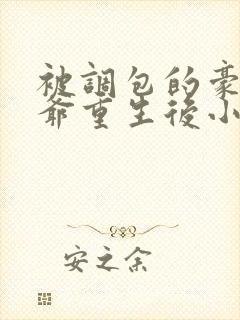 被調包的豪
爺重生後小
安之余